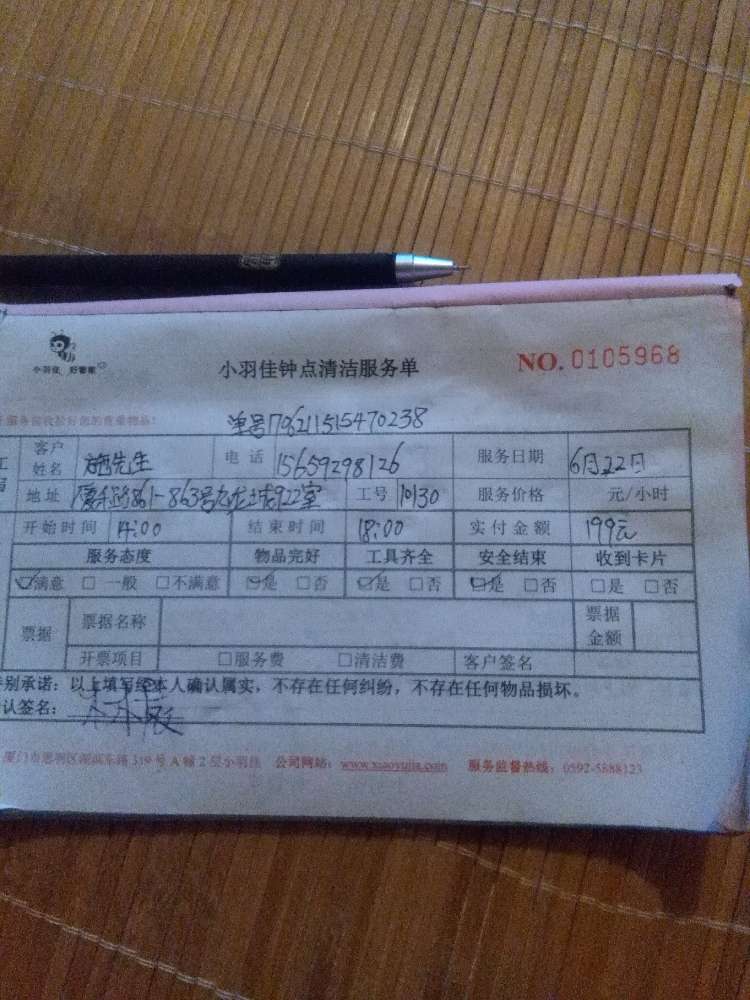 小羽佳 好管家
小羽佳钟点清洁服务单
NO. 0105968
单号796211515470238
客户姓名 施先生 电话 15659298126 服务日期 6月22日
地址 861-863号 922室 工号 10130 服务价格 元/小时
开始时间 14:00 结束时间 18:00 实付金额 199元
服务态度 物品完好 工具齐全 安全结束 收到卡片
☑满意 □一般 □不满意 ☑是 □否 ☑是 □否 ☑是 □否 □是 □否
票据 票据名称 票据金额
开票项目 □服务费 □清洁费 客户签名
别承诺：以上填写经本人确认属实，不存在任何纠纷，不存在任何物品损坏。
认签名：
厦门市思明区湖滨东路319号A幢2层小羽佳 公司网站：www.xiaoyujia.com 服务监督热线：0592-5888123